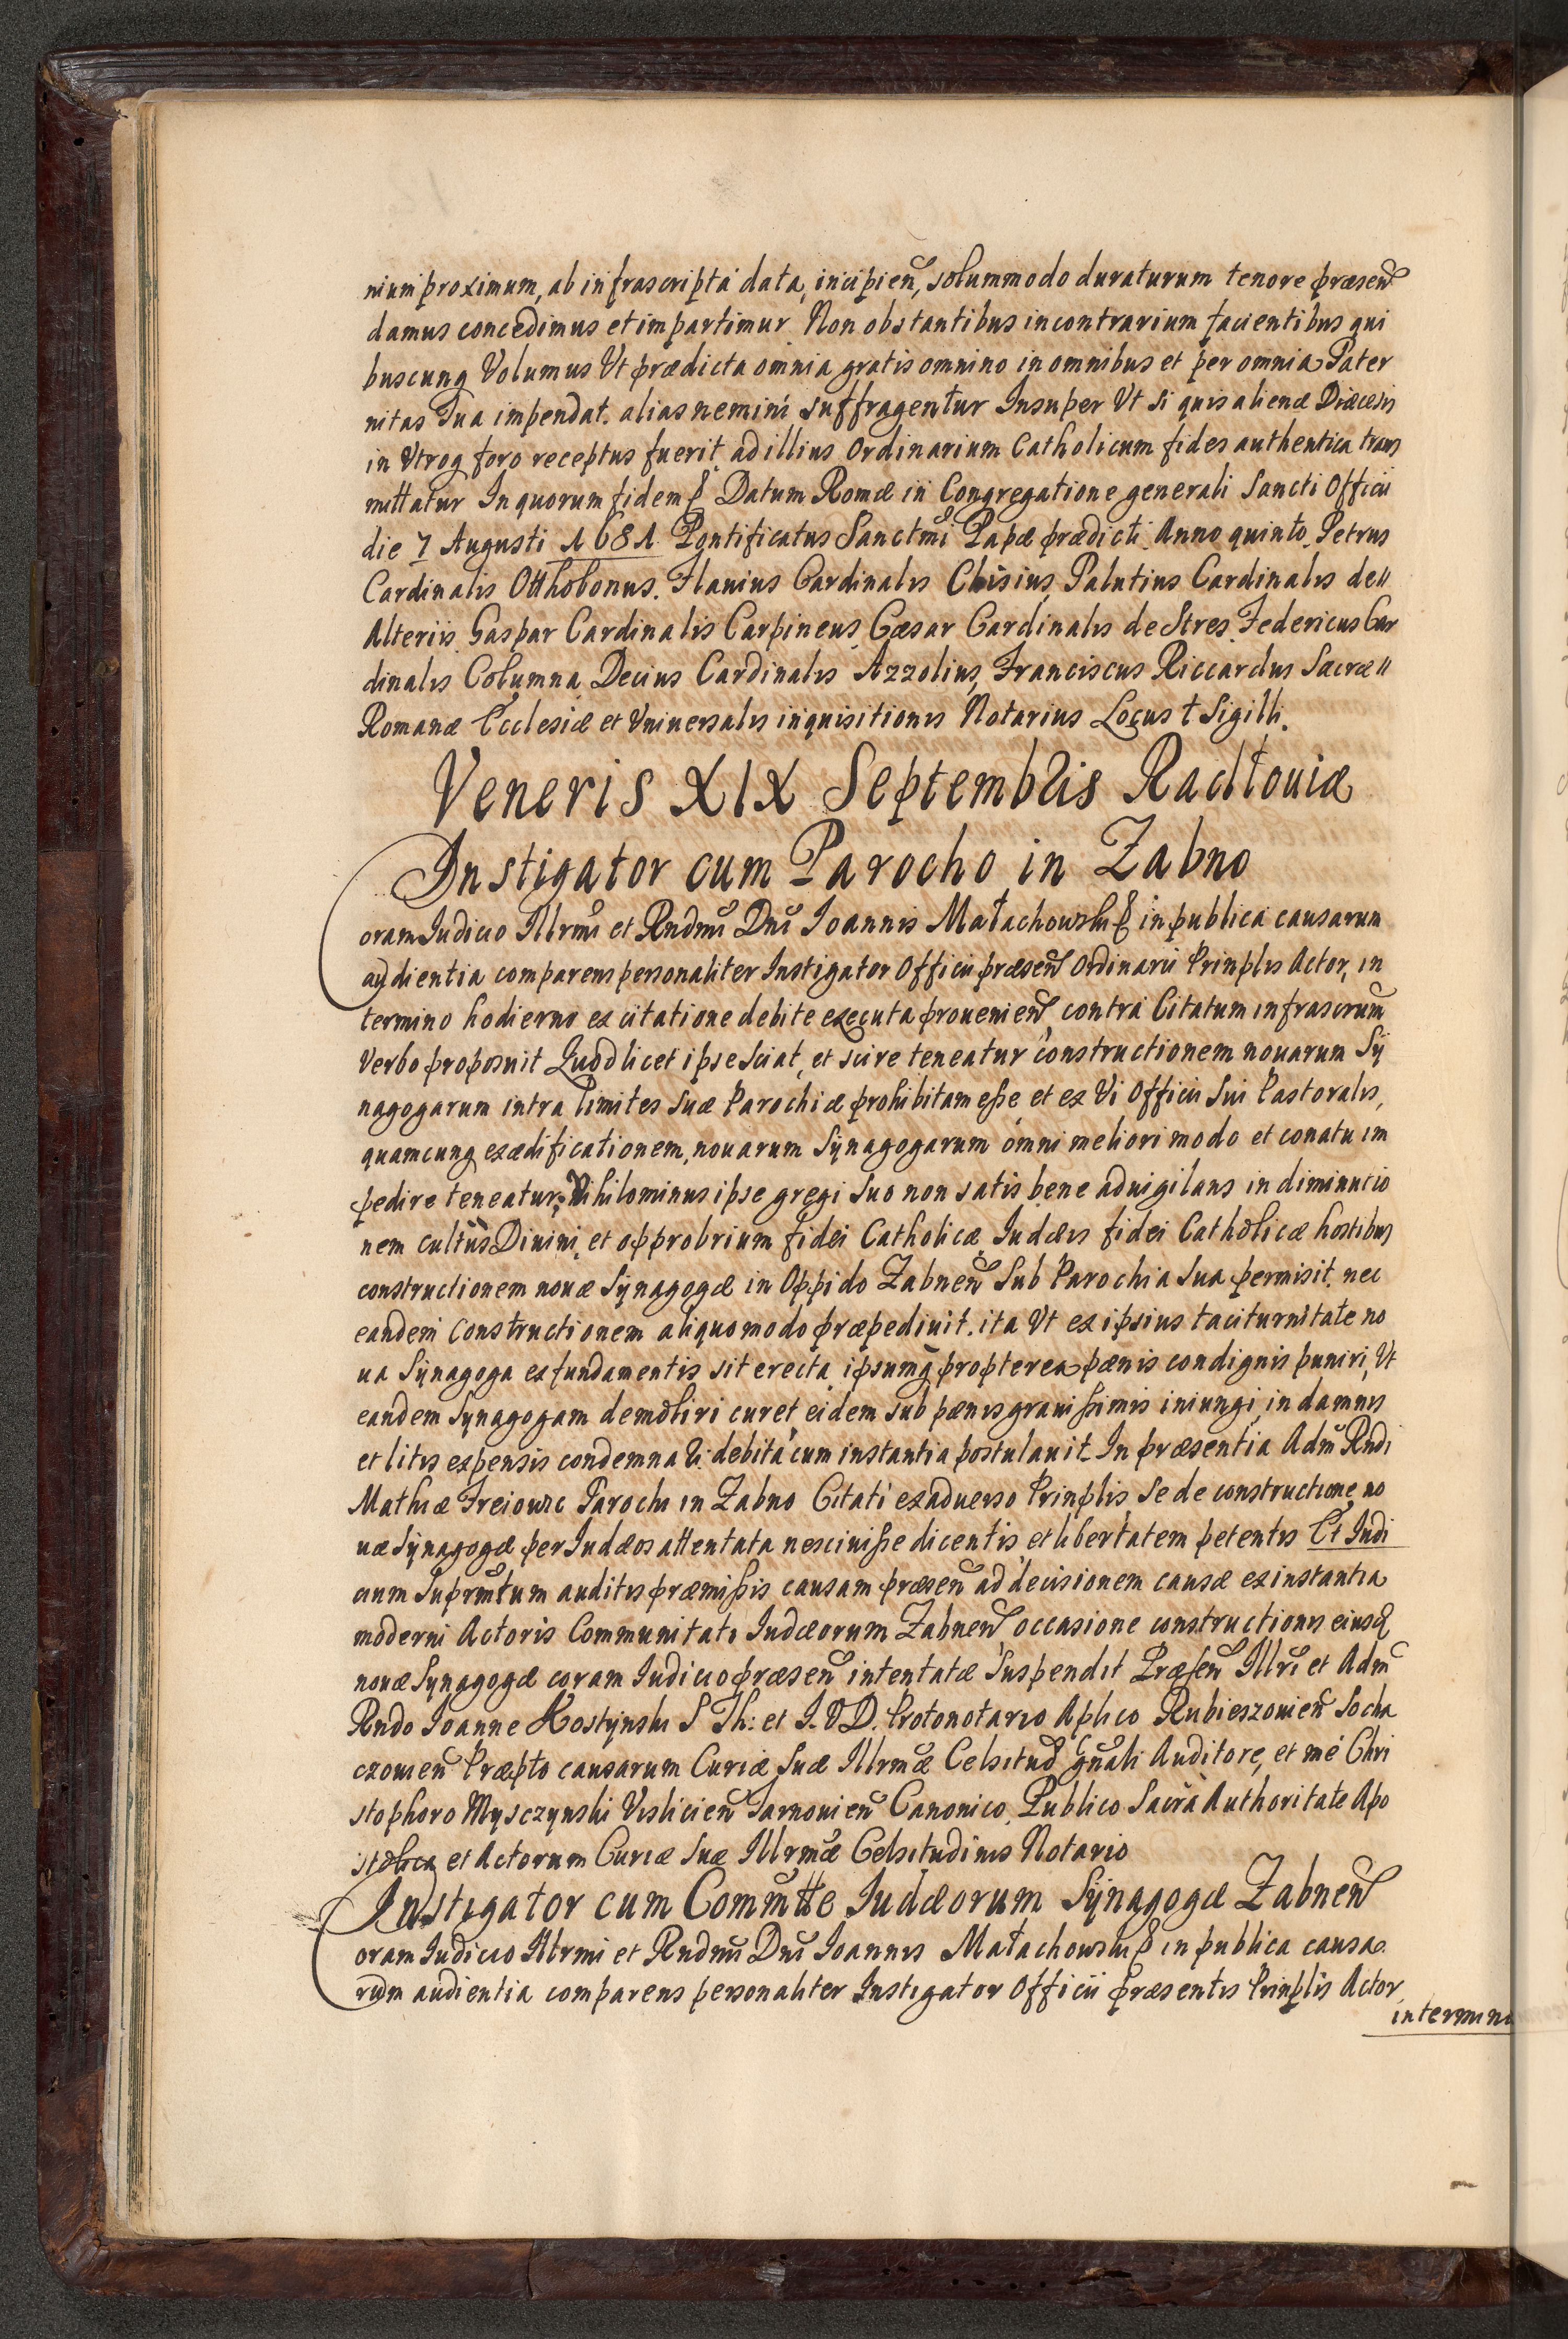 nium proximum, ab infrascripta data, incipien̄, solummodo duraturum tenore præsen̄
damus concedimus et impartimur Non obstantibus in contrarium facientibus qui
buscunq Volumus Vt prædicta omnia gratis omnino in omnibus et per omnia Pater
nitas Tua impendat. alias nemini suffragentur Insuper Vt si quis alienæ Diæcesis
in Vtroq foro receptus fuerit ad illius Ordinarium Catholicum fides authentica trans
mittatur In quorum fidem Datum Romæ in Congregatione generali Sancti Officii
die 7 Augusti 1681 Pontificatus Sanctmi Papæ prædicti Anno quinto. Petrus
Cardinalis Otthobonus. Flauius Cardinalis Chisius, Palutius Cardinalis de //
Alteriis Gaspar Cardinalis Carpineus Cæsar Cardinalis de Stres. Federicus Car
dinalis Columna Decius Cardinalis Azzolius, Franciscus Riccardus Sacræ //
Romanæ Ecclesiæ et Vniuersalis inquisitionis Notarius Locus † Sigilli.
Veneris XIX Septembris Radłouiæ
Instigator cum Parocho in Zabno
Coram Iudicio Illrmi et Rndmi Dni Ioannis Małachowski in publica causarum
audientia comparens personaliter Instigator Officii præsen̄ Ordinarii Prinplis Actor, in
termino hodierno ex citatione debite executa prouenien̄, contra Citatum infrascrum
Verbo proposuit Quod licet ipse sciat, et scire teneatur constructionem nouarum Sÿ
nagogarum intra limites suæ Parochiæ prohibitam esse et ex Vi Officii Sui Pastoralis,
quamcunq exædificationem, nouarum Sÿnagogarum omni meliori modo et conatu im
pedire teneatur, Nihilominus ipse gregi suo non satis bene aduigilans in diminutio
nem cultus Diuini, et opprobrium fidei Catholicæ Iudæis fidei Catholicæ hostibus
constructionem nouæ Sÿnagogæ in Oppido Zabnen̄ Sub Parochia sua permisit. nec
eandem constructionem aliquomodo præpediuit. ita Vt ex ipsius taciturnitate no
ua Sÿnagoga ex fundamentis sit erecta ipsumq propterea pænis condignis puniri, Vt
eandem Sÿnagogam demoliri curet eidem sub pænis grauissimis iniungi, in damnis
et litis expensis condemnari debita cum instantia postulauit. In præsentia Adm Rndi
Mathiæ Freiowic Parochi in Zabno Citati ex aduerso Prinplis se de constructione no
uæ Sÿnagogæ per Iudæos attentata nesciuisse dicentis, et libertatem petentis Et Iudi
cium Suprmtum auditis præmissis causam præsen̄ ad decisionem causæ ex instantia
moderni Actoris Communitati Iudæorum Zabnen̄ occasione constructionis eiusd
nouæ Synagogæ coram Iudicio præsen̄ intentatæ suspendit Præsen̄ Illri et Adm
Rndo Ioanne Hostÿnski S Th: et I. V D. Protonotario Aplico Rubieszouien̄ Socha
czouien̄ Præpto causarum Curiæ Suæ Illrmæ Celsitud gnali Auditore, et me Chri
stophoro Mysczynski Vislicien̄ Tarnouien̄ Canonico, Publico Sacra Authoritate Apo
stolica et Actorum Curiæ Suæ Illrmæ Celsitudinis Notario
Instigator cum Commtte Iudæorum Sÿnagogæ Zabnen̄
Coram Iudicio Illrmi et Rndmi Dni Ioannis Małachowski in publica causa
rum audientia comparens personaliter Instigator Officii præsentis Prinplis Actor,
in termino